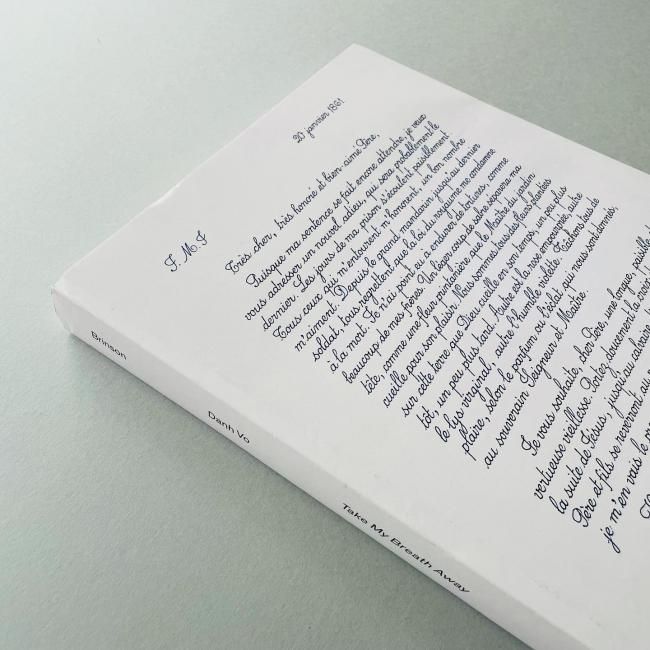 20 janvier 1861.
J. M. J
Très cher, très honoré et bien-aimé Père,
Puisque ma sentence se fait encore attendre, je veux
vous adresser un nouvel adieu, qui sera probablement le
dernier. Les jours de ma prison s'écoulent paisiblement.
Tous ceux qui m'entourent m'honorent, un bon nombre
m'aiment. Depuis le grand mandarin jusqu'au dernier
soldat, tous regrettent que la loi du royaume me condamne
à la mort. Je n'ai point eu à endurer de tortures, comme
beaucoup de mes frères. Un léger coup de sabre séparera ma
tête, comme une fleur printanière que le Maître du jardin
cueille pour son plaisir. Nous sommes tous des fleurs plantées
sur cette terre que Dieu cueille en son temps, un peu plus
tôt, un peu plus tard. Autre est la rose empourprée, autre
le lys virginal, autre l'humble violette. Tâchons tous de
plaire, selon le parfum ou l'éclat qui nous sont donnés,
au souverain Seigneur et Maître.
Je vous souhaite, cher Père, une longue, paisible
vertueuse vieillesse. Portez doucement la croix
la suite de Jésus, jusqu'au calvaire
Père et fils se reverront au
je m'en vais le
Brinson
Danh Vo
Take My Breath Away